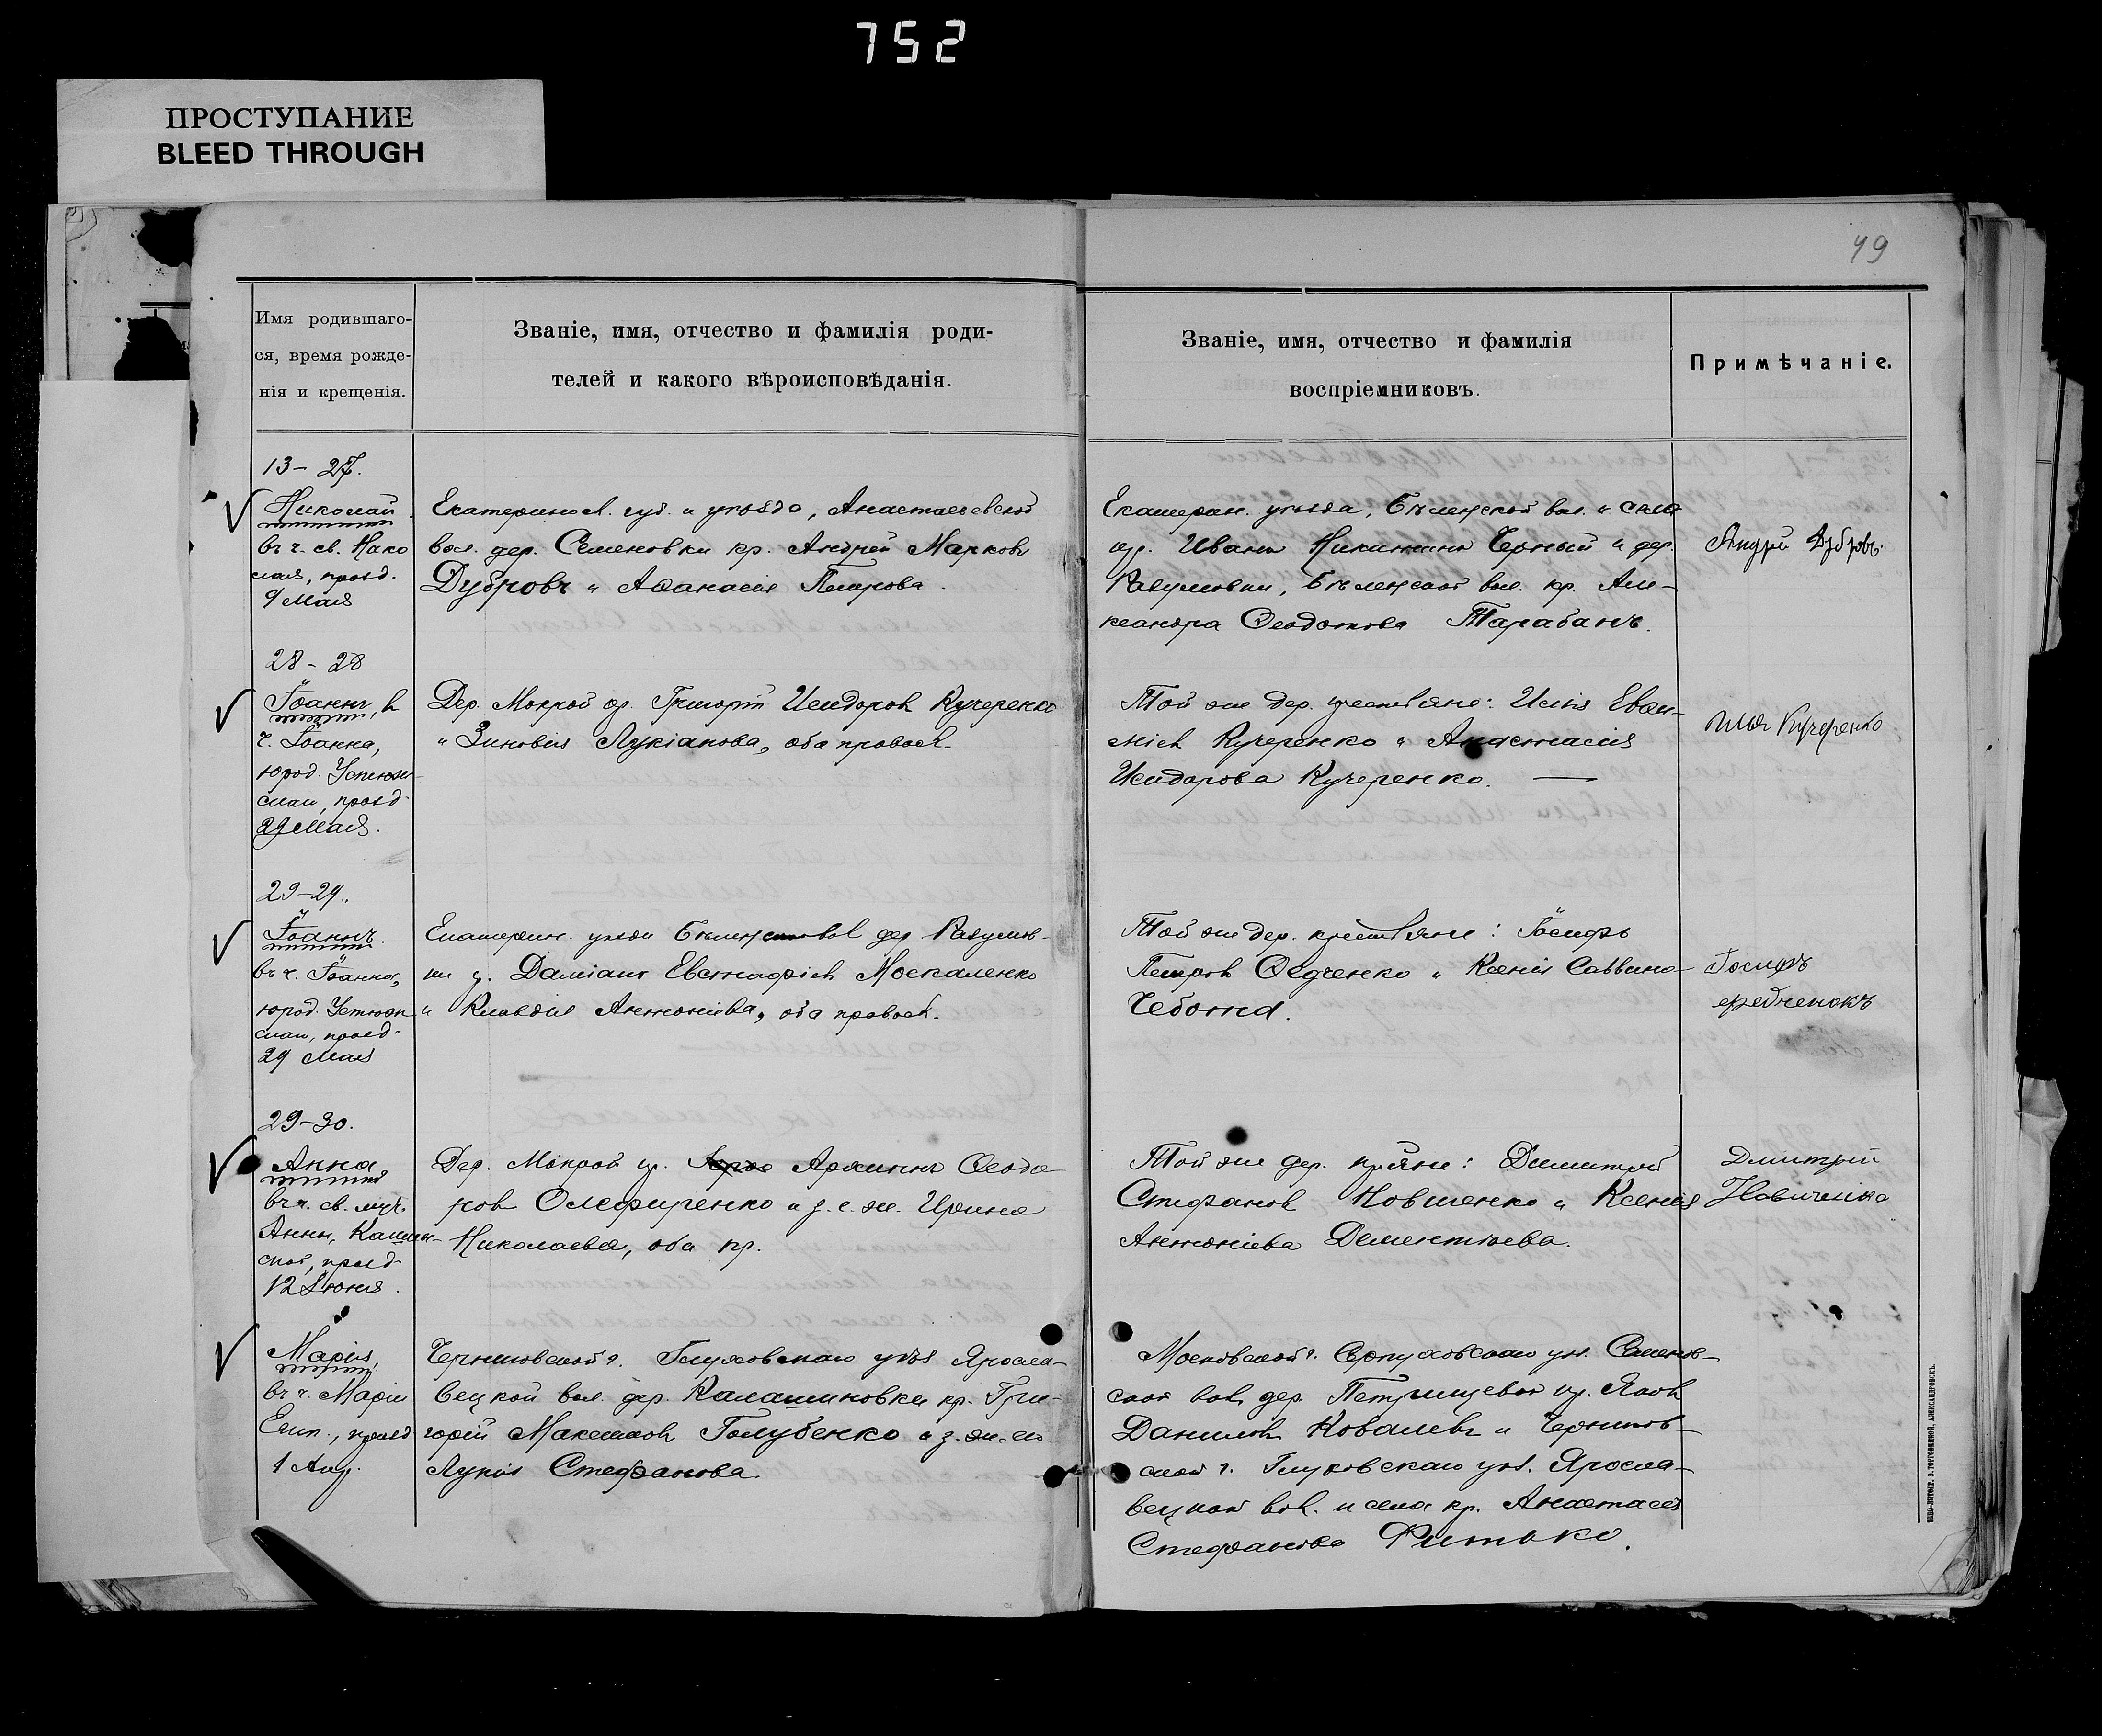 752
ПРОСТУПАНИЕ
BLEED THROUGH
49
Имя родившаго-
ся, время рожде-
нія и крещенія.
Званіе, имя, отчество и фамилія роди-
телей и какого вѣроисповѣданія.
Званіе, имя, отчество и фамилія
воспріемниковъ.
Примѣчаніе.
13 - 27.
Николай
въ ч. св. Нико
лая, празд.
9 Мая
Екатериносл. губ. и уѣзда, Анастасіевской
вол. дер. Семеновки кр. Андрей Марковъ
Дубровъ и Аѳанасія Петрова.
Екатерин. уѣзда, Бѣленской вол. и села
кр. Иванъ Никитинъ Черный и дер.
Разумовки, Бѣленской вол. кр. Але-
ксандра Ѳеодотова Тарабанъ.
Андрей Дубровъ.
28 - 28
Іоаннъ, въ
ч. Іоанна,
юрод. Устюж-
скаго, празд.
29 Мая.
Дер. Мокрой кр. Григорій Исидоровъ Кучеренко
и Зиновія Лукіанова, оба правосл.
Той же дер. крестьяне: Илія Еван-
Кучеренко и Анастасія
Исидорова Кучеренко.
Илья Кучеренко
29 - 29.
Іоаннъ.
въ ч. Іоанна,
юрод. Устюж
скаго, празд.
29 Мая
Екатерин. уѣзда Бѣленской вол дер Разумов-
ки к. Даміанъ Евстафіевъ Москаленко
и Клавдія Антоніева, оба правосл.
Той же дер. крестьяне: Іосифъ
Петровъ Ѳедченко и Ксенія Саввина
Чебот
Іосифъ
29 - 30.
Анна,
въ ч. св. муч.
Анны, Кашин-
ской, празд.
12 Іюня.
Дер. Мокрой кр. Архипъ Ѳеодо
ровъ Олефиренко и з. е. ж. Ирина
Николаева, оба пр.
Той же дер. кр-яне: Димитрій
Стефановъ Новиченко и Ксенія
Антоніева Дементьева.
Дмитрій
Новиченко
Марія,
въ ч. Маріи
Египт., празд
1 Апр.
Черниговской г. Глуховскаго уѣз Яросла-
вецкой вол. дер. Калашиновки кр. Гри-
горій Максимовъ Голубенко и з. ж. ео
Лукія Стефанова.
Московской г. Серпуховскаго уѣз. Семенов-
ской вол. дер. Петрищевой кр. Яковъ
Даниловъ Ковалевъ и Чернигов-
ской г. Глуховскаго уѣз. Яросла-
вецкой вол. и села кр. Анастасія
Стефанова Ритько.